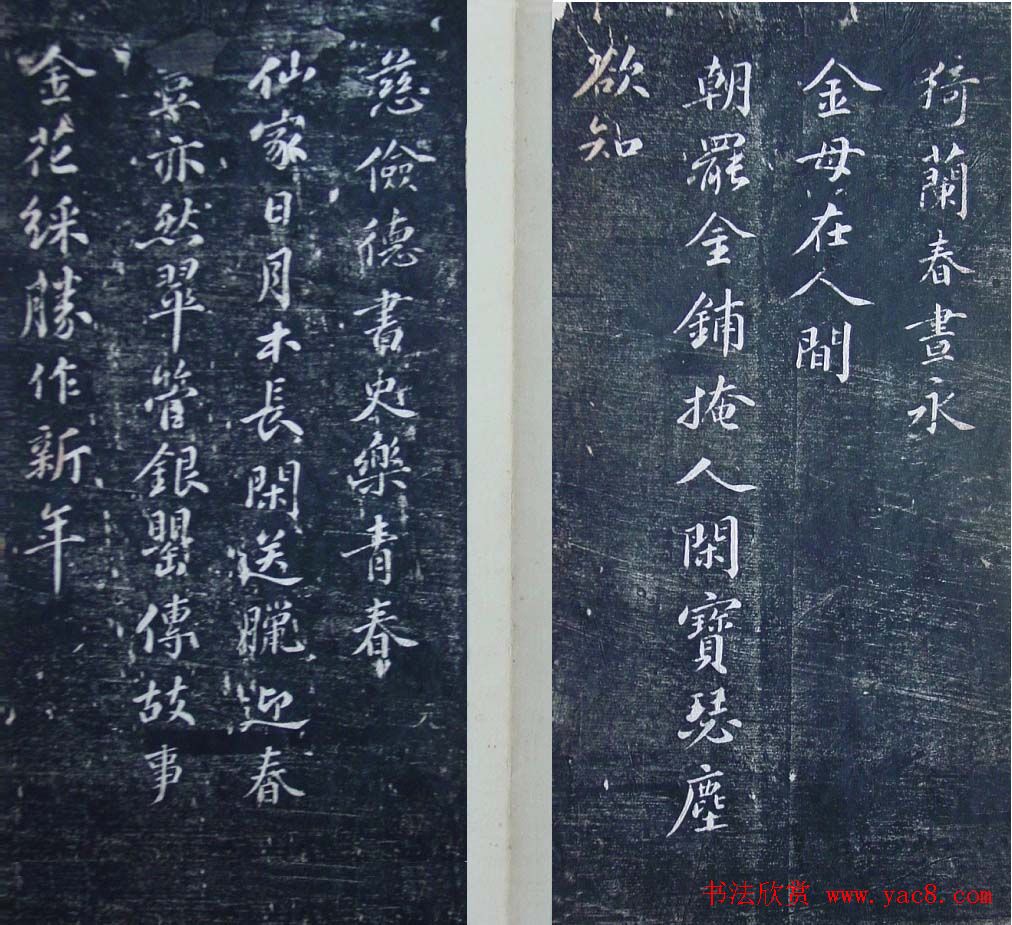 猗蘭春晝永
金母在人間
朝罷金鋪掩人閑寶瑟塵
欲知
慈儉德書史樂青春
仙家日月本長閑送臘迎春
亦然翠管銀罌傳故事
金花綵勝作新年
书法欣赏 www.yac8.com